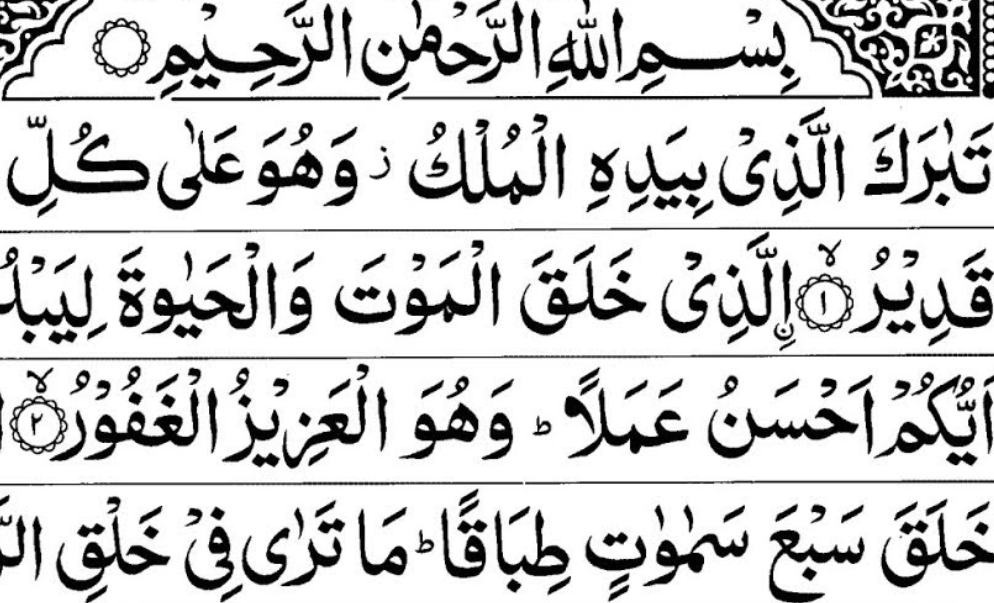 بِسْمِ اللّٰهِ الرَّحْمٰنِ الرَّحِيْمِ
تَبٰرَكَ الَّذِىْ بِيَدِهِ الْمُلْكُ ز وَهُوَ عَلٰى كُلِّ
قَدِيْرُ ۙ‏﴿۱﴾ اۨلَّذِىْ خَلَقَ الْمَوْتَ وَالْحَيٰوةَ لِيَبْلُ
اَيُّكُمْ اَحْسَنُ عَمَلًا ؕ وَهُوَ الْعَزِيْزُ الْغَفُوْرُ ۙ‏﴿۲﴾
خَلَقَ سَبْعَ سَمٰوٰتٍ طِبَاقًا ؕ مَا تَرٰى فِىْ خَلْقِ